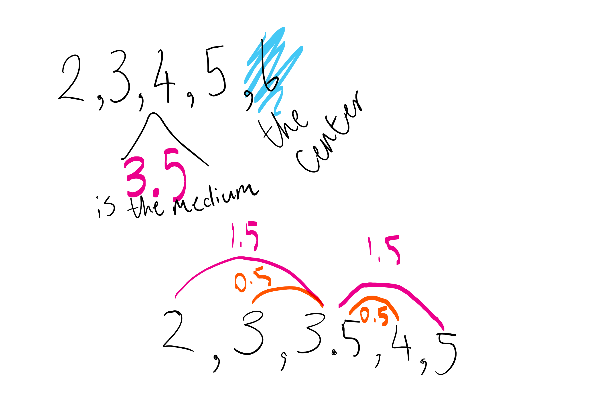 2,3,4,5,6
the
center
3.5
is the medium
1.5 1.5
0.5 0.5
2,3,3.5,4,5